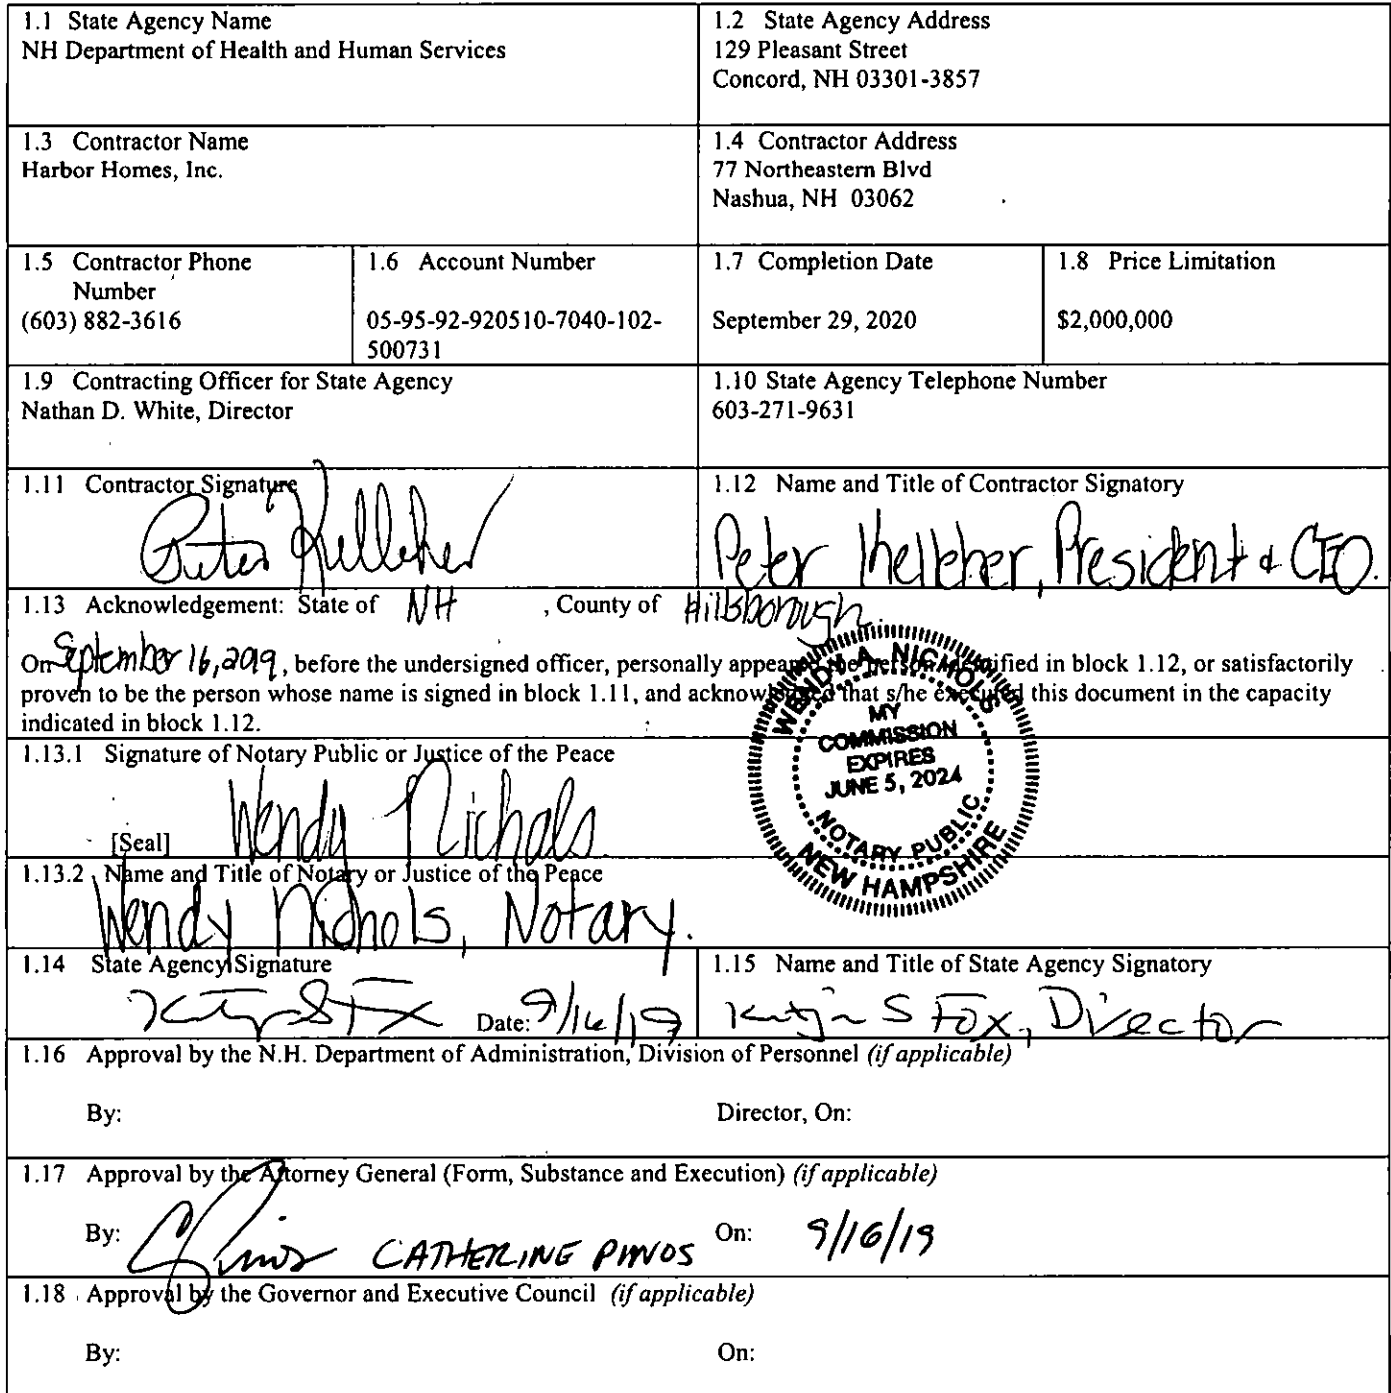 1.1 State Agency Name
NH Department of Health and Human Services
1.2 State Agency Address
129 Pleasant Street
Concord, NH 03301-3857
1.3 Contractor Name
Harbor Homes, Inc.
1.4 Contractor Address
77 Northeastern Blvd
Nashua, NH 03062
1.5 Contractor Phone
Number
(603) 882-3616
1.6 Account Number
05-95-92-920510-7040-102-
500731
1.7 Completion Date
September 29, 2020
1.8 Price Limitation
$2,000,000
1.9 Contracting Officer for State Agency
Nathan D. White, Director
1.10 State Agency Telephone Number
603-271-9631
1.11 Contractor Signature
Peter Kelleher
1.12 Name and Title of Contractor Signatory
Peter Kelleher, President & CEO.
1.13 Acknowledgement: State of NH , County of Hillsborough.
On September 16, 2019, before the undersigned officer, personally appeared the person identified in block 1.12, or satisfactorily
proven to be the person whose name is signed in block 1.11, and acknowledged that s/he executed this document in the capacity
indicated in block 1.12.
WENDY A. NICHOLS
MY
COMMISSION
EXPIRES
JUNE 5, 2024
NOTARY PUBLIC
NEW HAMPSHIRE
1.13.1 Signature of Notary Public or Justice of the Peace
Wendy Nichols
[Seal]
1.13.2 Name and Title of Notary or Justice of the Peace
Wendy Nichols, Notary.
1.14 State Agency Signature
Date: 9/16/19
1.15 Name and Title of State Agency Signatory
Katja S Fox, Director
1.16 Approval by the N.H. Department of Administration, Division of Personnel (if applicable)
By:
Director, On:
1.17 Approval by the Attorney General (Form, Substance and Execution) (if applicable)
By: CATHERINE PINOS
On: 9/16/19
1.18 Approval by the Governor and Executive Council (if applicable)
By:
On: